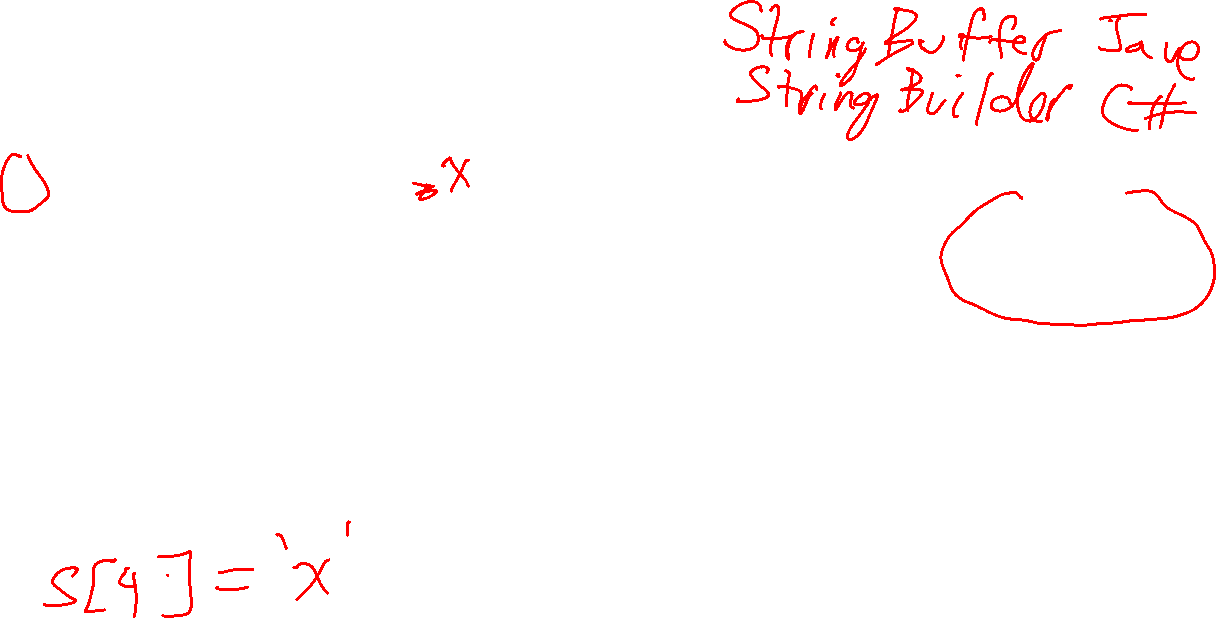 StringBuffer Java
StringBuilder C#
x
s[4] = 'x'